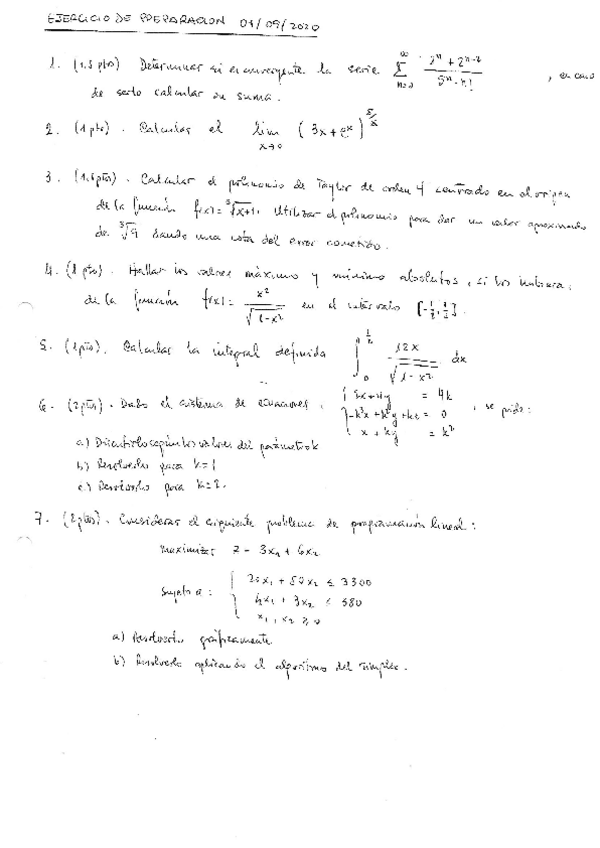 EJERCICIO DE PREPARACION 01/09/2020
1. (1,5 pto) Determinar si es convergente la serie ∑ n=0 ∞ (2^n + 2^(n-2)) / (5^n · n!) , en caso
de serlo calcular su suma.
2. (1 pto). Calcular el lim x→0 (3x + e^x)^(5/x)
3. (1,5 ptos). Calcular el polinomio de Taylor de orden 4 centrado en el origen
de la función f(x) = ∛x+1. Utilizar el polinomio para dar un valor aproximado
de ∛9 dando una cota del error cometido.
4. (1 pto). Hallar los valores máximo y mínimo absolutos, si los hubiera,
de la función f(x) = x² / √(1-x²) en el intervalo [-1/2, 1/2].
5. (1 pto). Calcular la integral definida ∫ 0 1/2 12x / √(1-x²) dx
6. (2 ptos). Dado el sistema de ecuaciones: = 4k
-k²x + k²y + kz = 0 , se pide:
x + ky = k²
a) Discutirlo según los valores del parámetro k
b) Resolverlo para k=1
c) Resolverlo para k=2.
7. (2 ptos). Considerar el siguiente problema de programación lineal:
maximizar z = 3x₁ + 6x₂
sujeto a: x₁ + 50x₂ ≤ 3300
x₁ + 3x₂ ≤ 380
x₁, x₂ ≥ 0
a) Resolverlo gráficamente
b) Resolverlo aplicando el algoritmo del simplex.